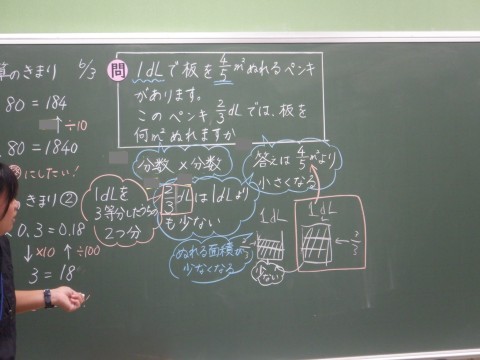 算のきまり 6/3
80=184
÷10
80=1840
にしたい!
きまり②
0.3=0.18
×10 ÷100
3=18
問
1dLで板を4/5m²ぬれるペンキ
があります。
このペンキ2/3dLでは、板を
何m²ぬれますか
分数×分数
答えは4/5m²より
小さくなる
1dLを
3等分したうちの
2つ分
2/3dLは1dLより
も少ない
ぬれる面積が
少なくなる
1dL
少ない
1dL
2/3